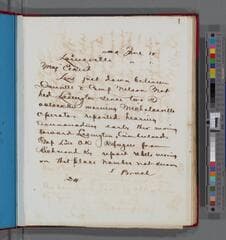 1
June 10
Louisville
Maj Cadet
Line just down between
Danville & Camp Nelson. Not
had Lexington since two
oclock. morning Nicholasville
Operator reported hearing
cannonading early this morng
toward Lexington, Cumberland
Gap Line O.K. Refugee from
Richmond Ky report rebels moving
on that place number not known
S. Bruch